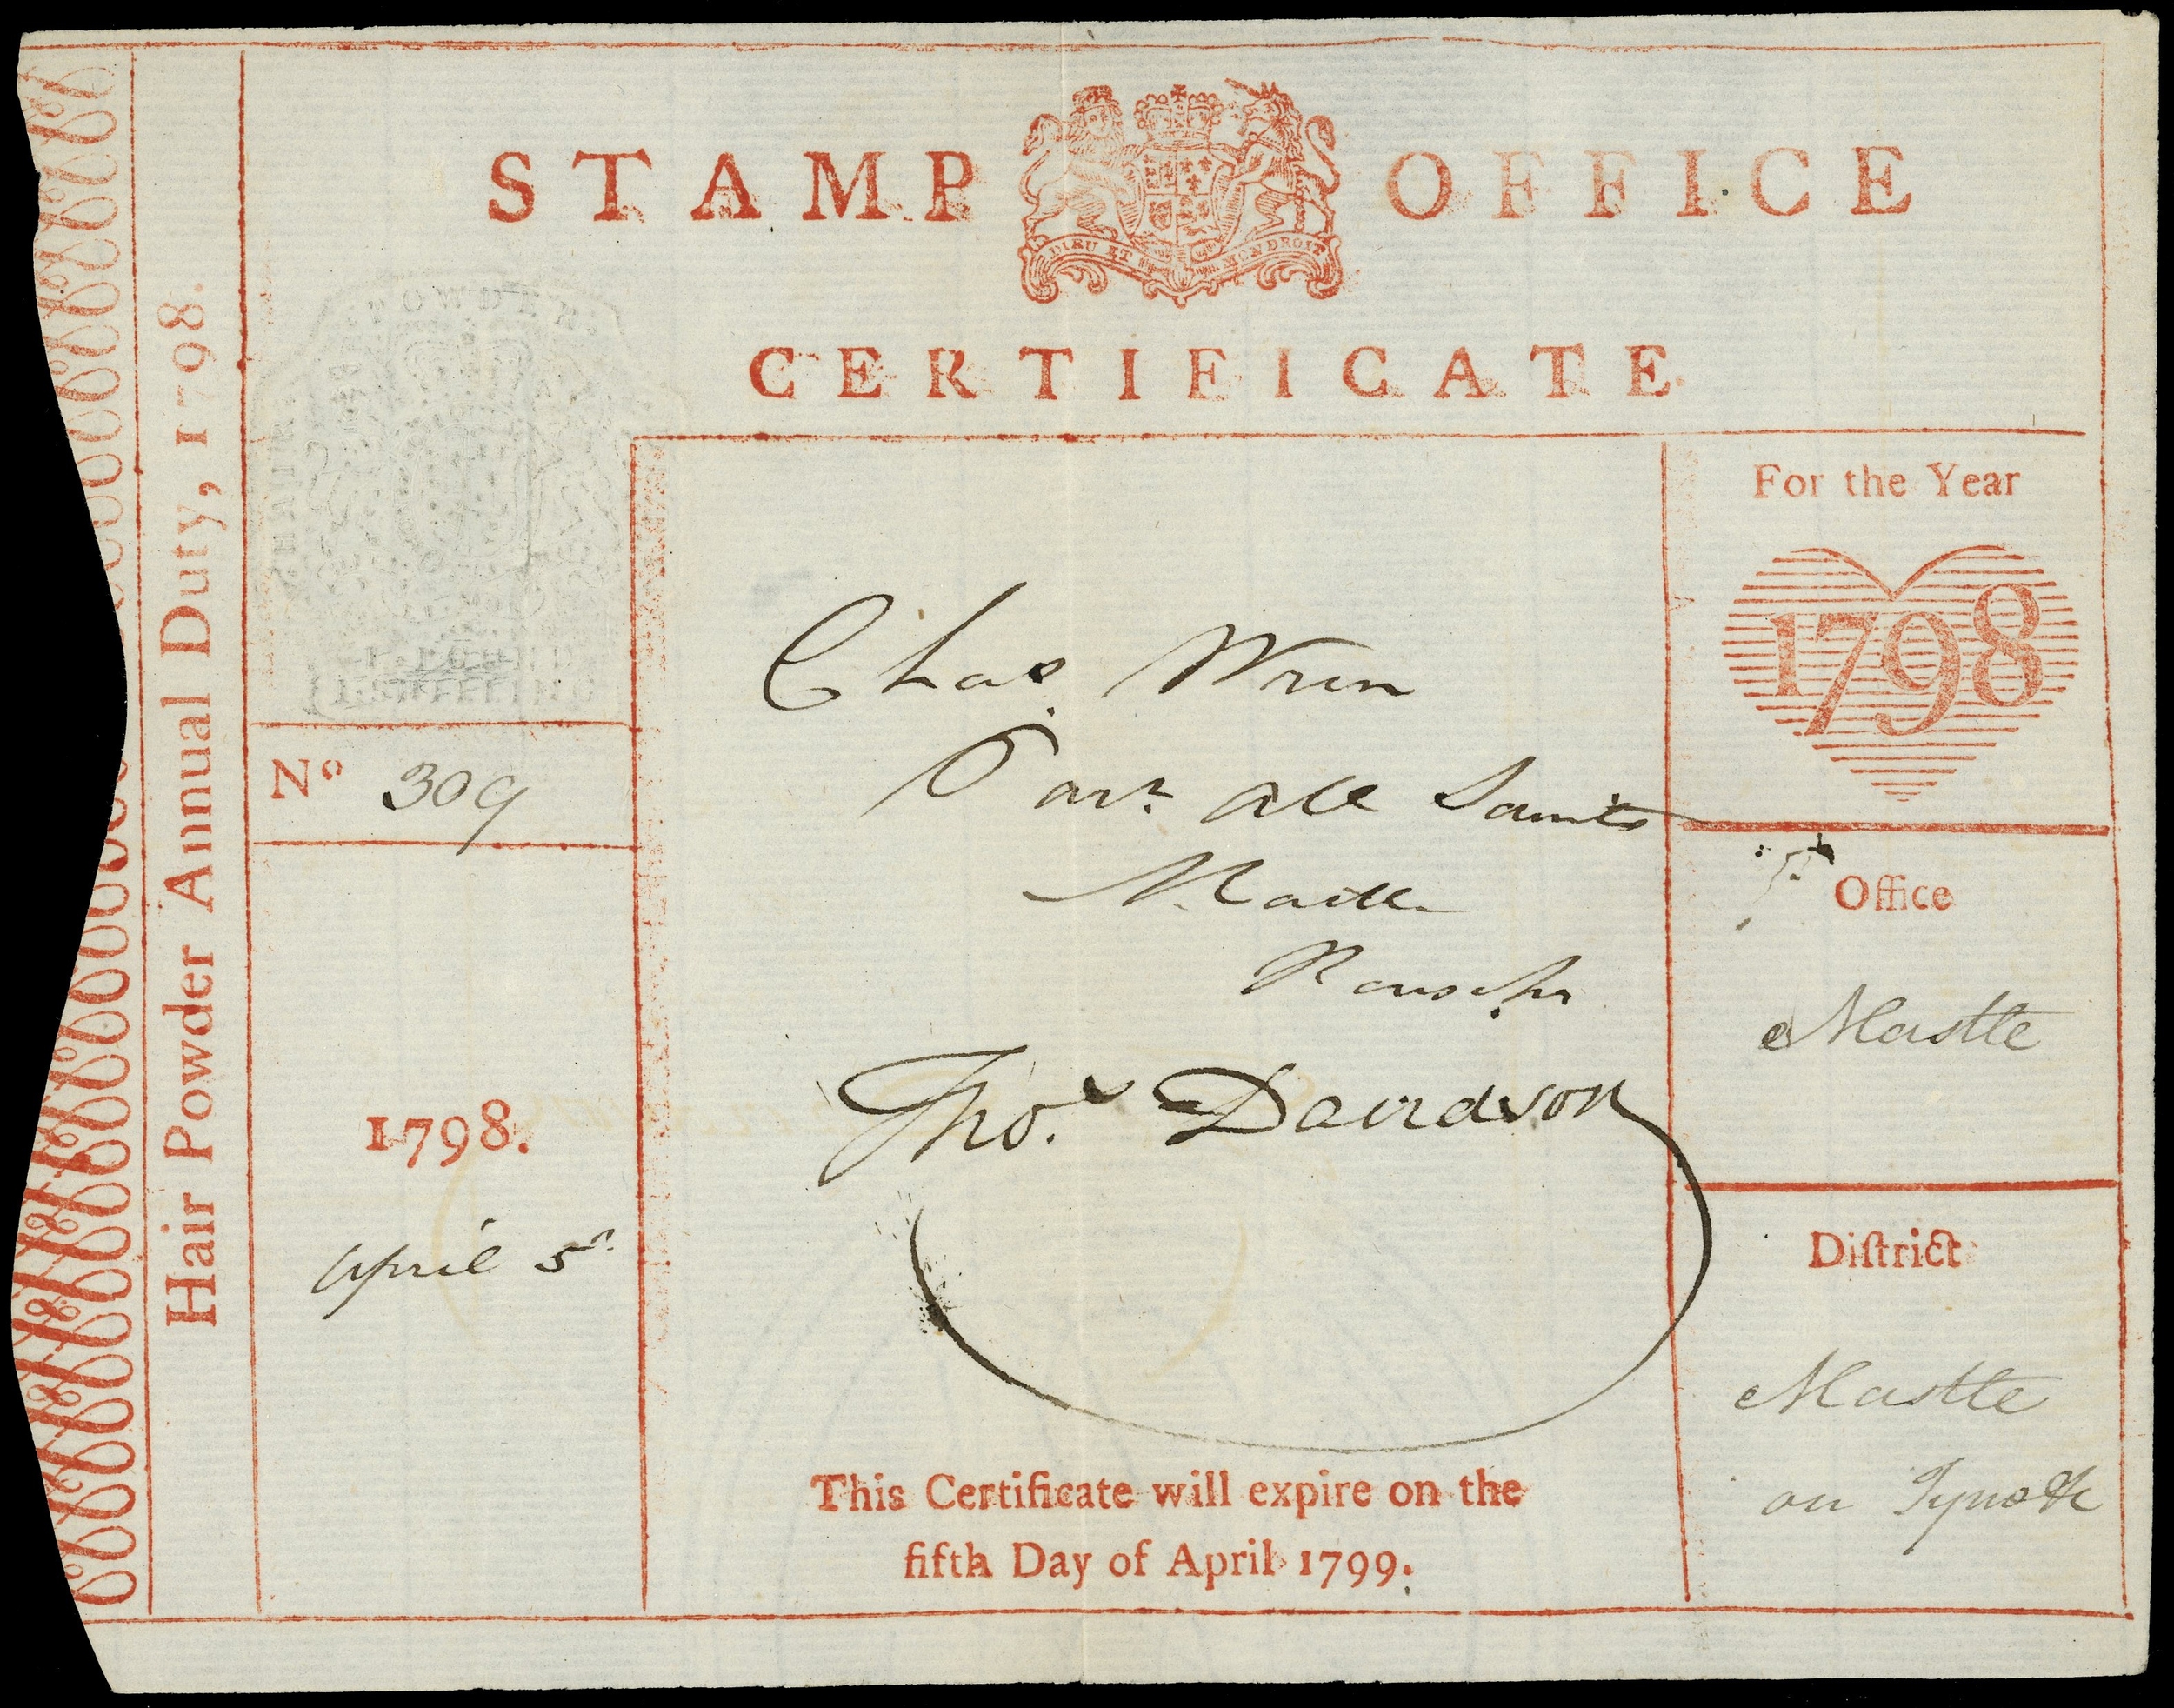 STAMP OFFICE
DIEU ET MON DROIT
CERTIFICATE
Hair Powder Annual Duty, 1798.
POWDER
HAIR
I POUND
I SHILLING
No 309
1798.
April 5th
Chas. Wren
Parh. All Saints
NCastle
Thos. Davidson
This Certificate will expire on the
fifth Day of April 1799.
For the Year
1798
Office
NCastle
District
NCastle
on Tyne &c